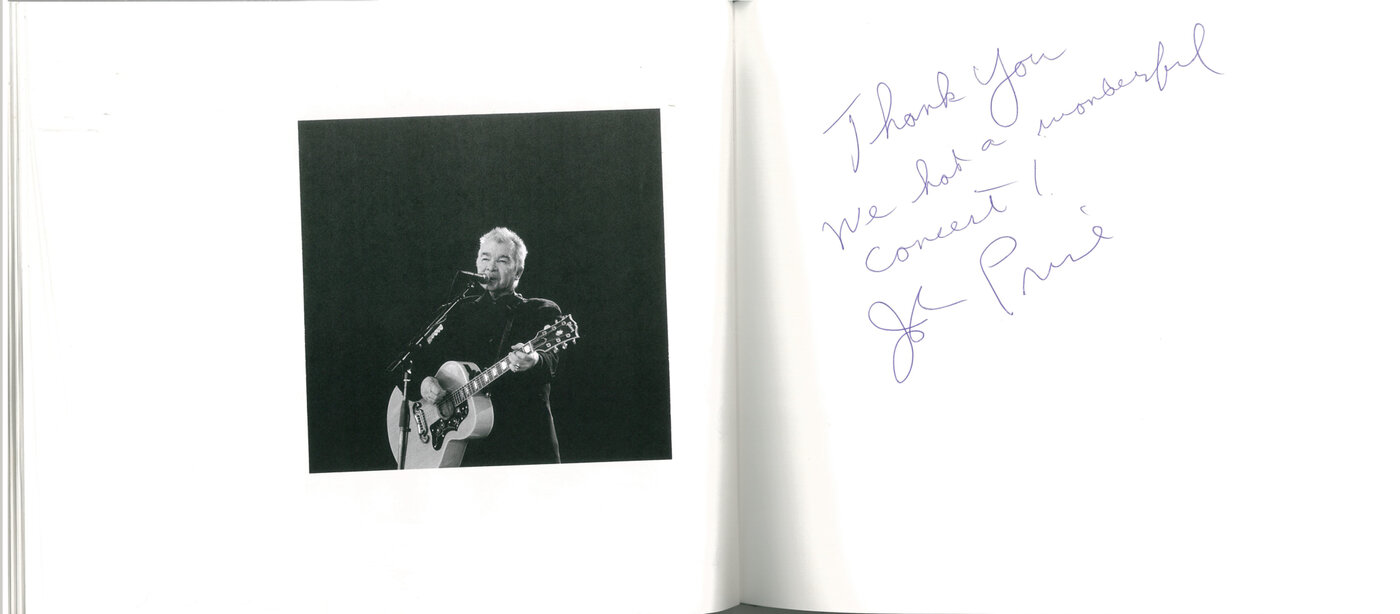 Thank You
We had a wonderful
concert!
John Prine